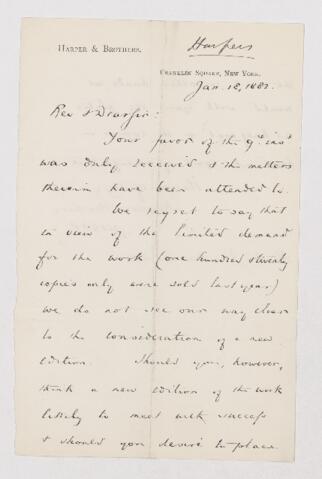 HARPER & BROTHERS.
Harpers
FRANKLIN SQUARE, NEW YORK.
Jan. 18, 1882.
Rev & Dear Sir:
Your favor of the 9th inst
was duly received & the matters
therein have been attended to.
We regret to say that
in view of the limited demand
for the work (one hundred & twenty
copies only were sold last year)
we do not see our way clear
to the consideration of a new
edition. Should you, however,
think a new edition of the work
likely to meet with success
& should you desire to place